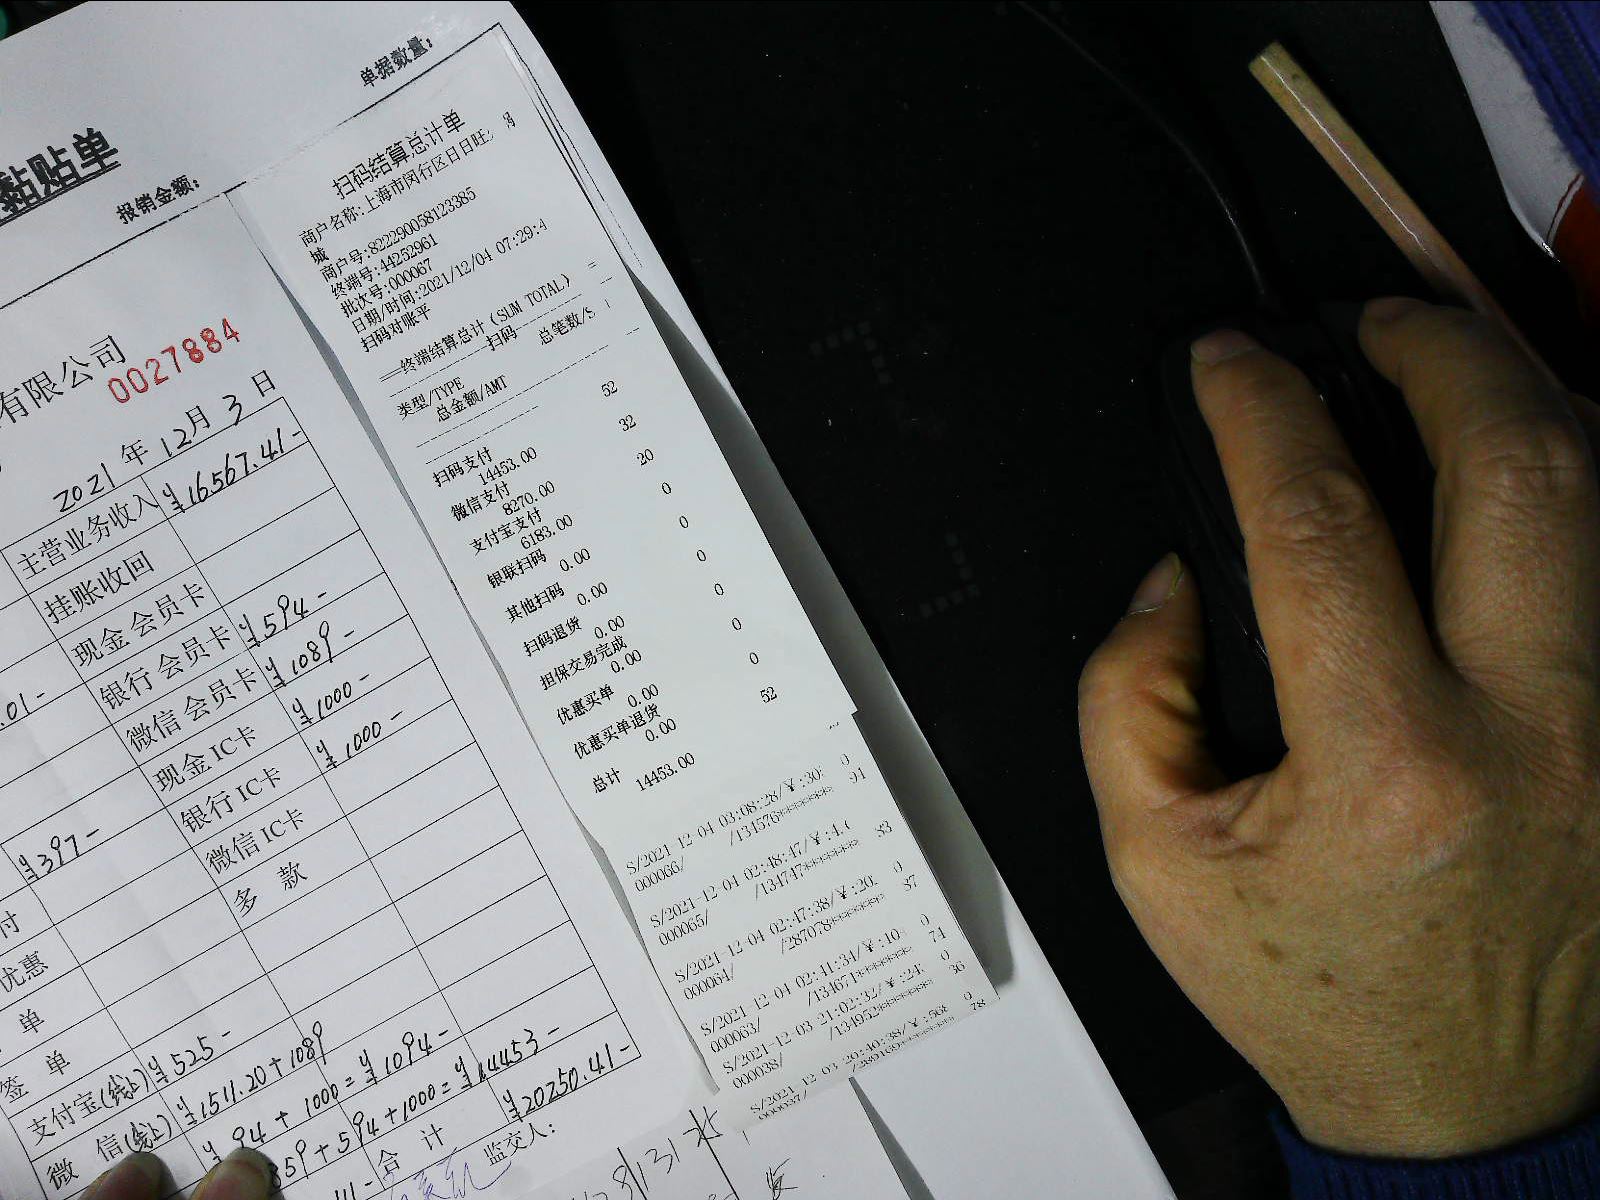 单据数量:
黏贴单
报销金额:
有限公司
0027884
2021年12月3日
主营业务收入 ¥16567.41-
挂账收回
现金会员卡
银行会员卡 ¥594-
微信会员卡 ¥1089-
现金IC卡 ¥1000-
银行IC卡 ¥1000-
微信IC卡
多 款
.01-
¥397-
付
优惠
单
签 单
支付宝(线上) ¥525-
微 信(线上) ¥1511.20+1089
¥94+1000=¥1094-
859+594+1000=¥14453-
合 计 ¥20250.41-
监交人:
扫码结算总计单
商户名称:上海市闵行区日日旺
城
商户号:822290058123385
终端号:44252961
批次号:000067
日期/时间:2021/12/04 07:29:4
扫码对账平
==终端结算总计(SUM TOTAL) =
扫码
类型/TYPE 总笔数/S
总金额/AMT
扫码支付 52
14453.00
微信支付 32
8270.00
支付宝支付 20
6183.00
银联扫码 0
0.00
其他扫码 0
0.00
扫码退货 0
0.00
担保交易完成 0
0.00
优惠买单 0
0.00
优惠买单退货 0
0.00
总计 52
14453.00
S/2021-12-04 03:08:28/¥:30 0
000066/ /134576******** 91
S/2021-12-04 02:48:47/¥:4.
000065/ /134747******** 83
S/2021-12-04 02:47:38/¥:20 0
000064/ /287078******** 87
S/2021-12-04 02:41:34/¥:10 0
000063/ /134671******** 74
S/2021-12-03 21:02:32/¥:24 0
000038/ /134952******** 36
S/2021-12-03 20:40:38/¥:568 0
000037/ /289160******** 78